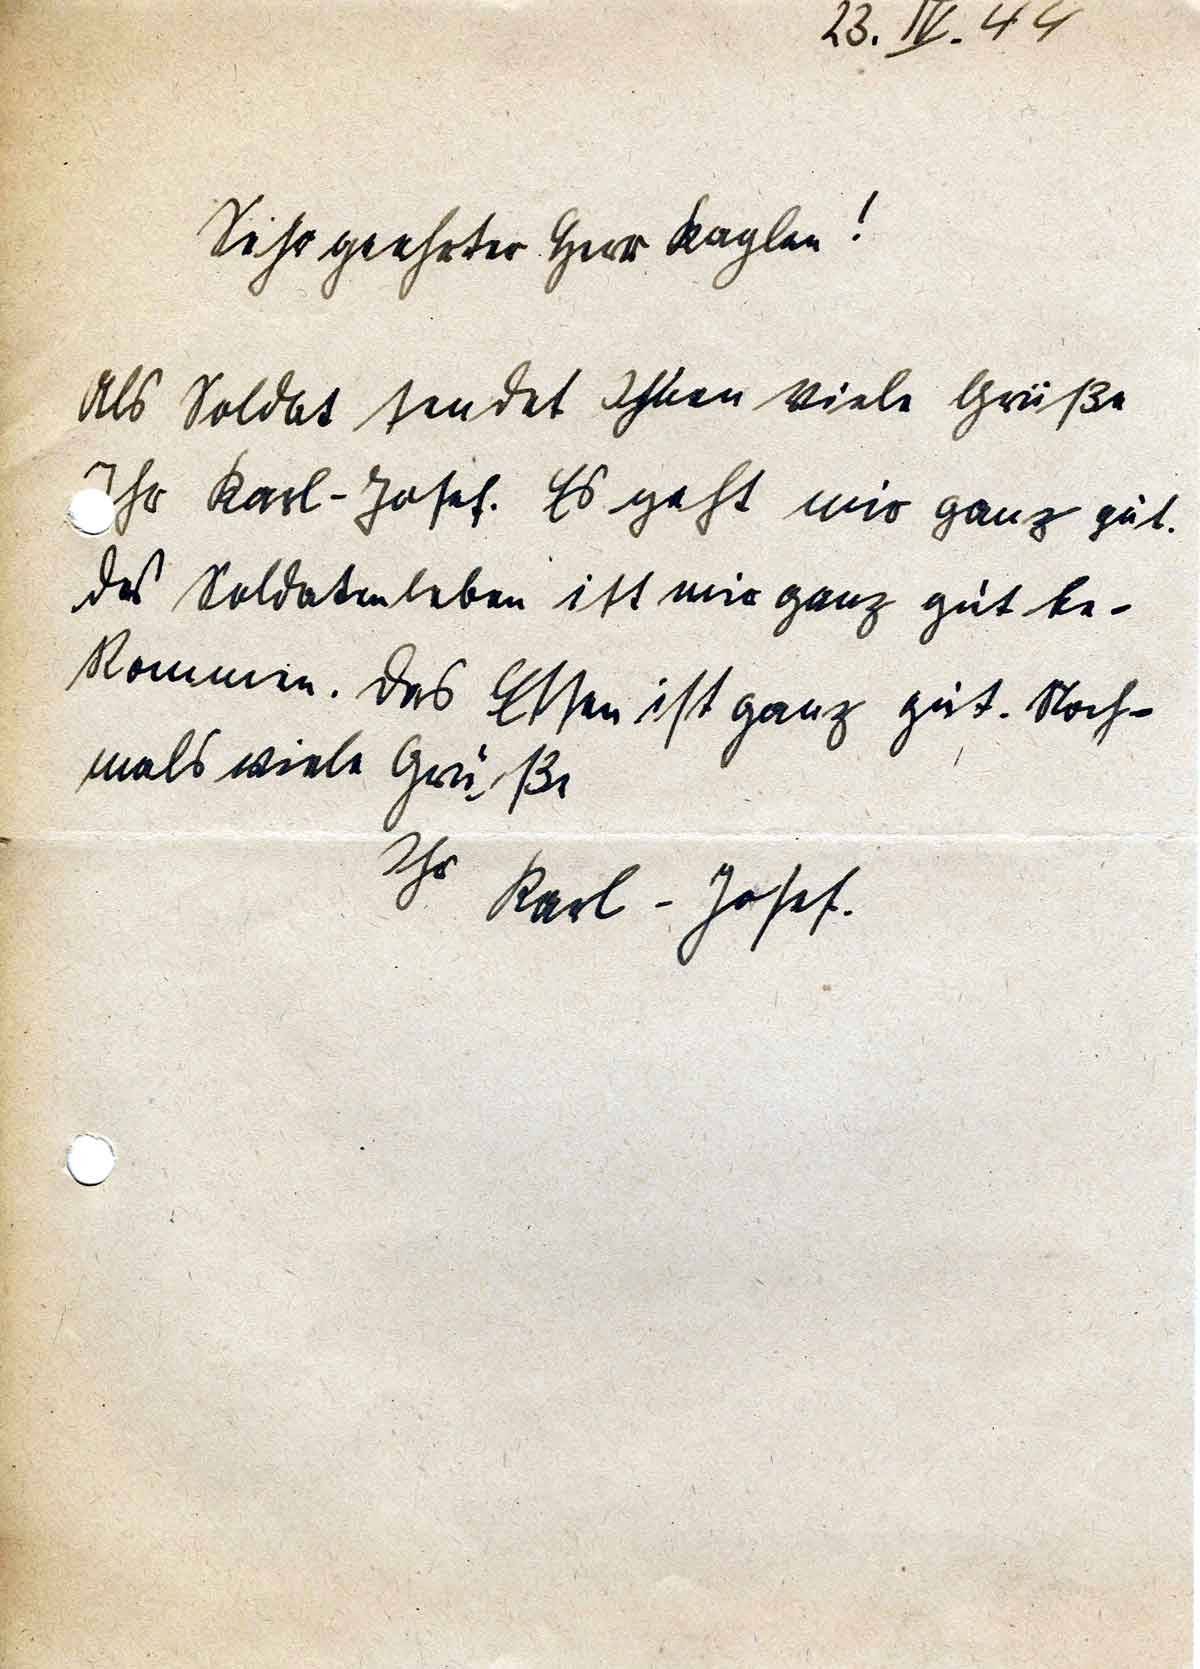 23. IV. 44
Sehr geehrter Herr Kaplan!
Als Soldat sendet Ihnen viele Grüße
Ihr Karl-Josef. Es geht mir ganz gut.
Das Soldatenleben ist mir ganz gut be-
kommen. Das Essen ist ganz gut. Noch-
mals viele Grüße
Ihr Karl-Josef.